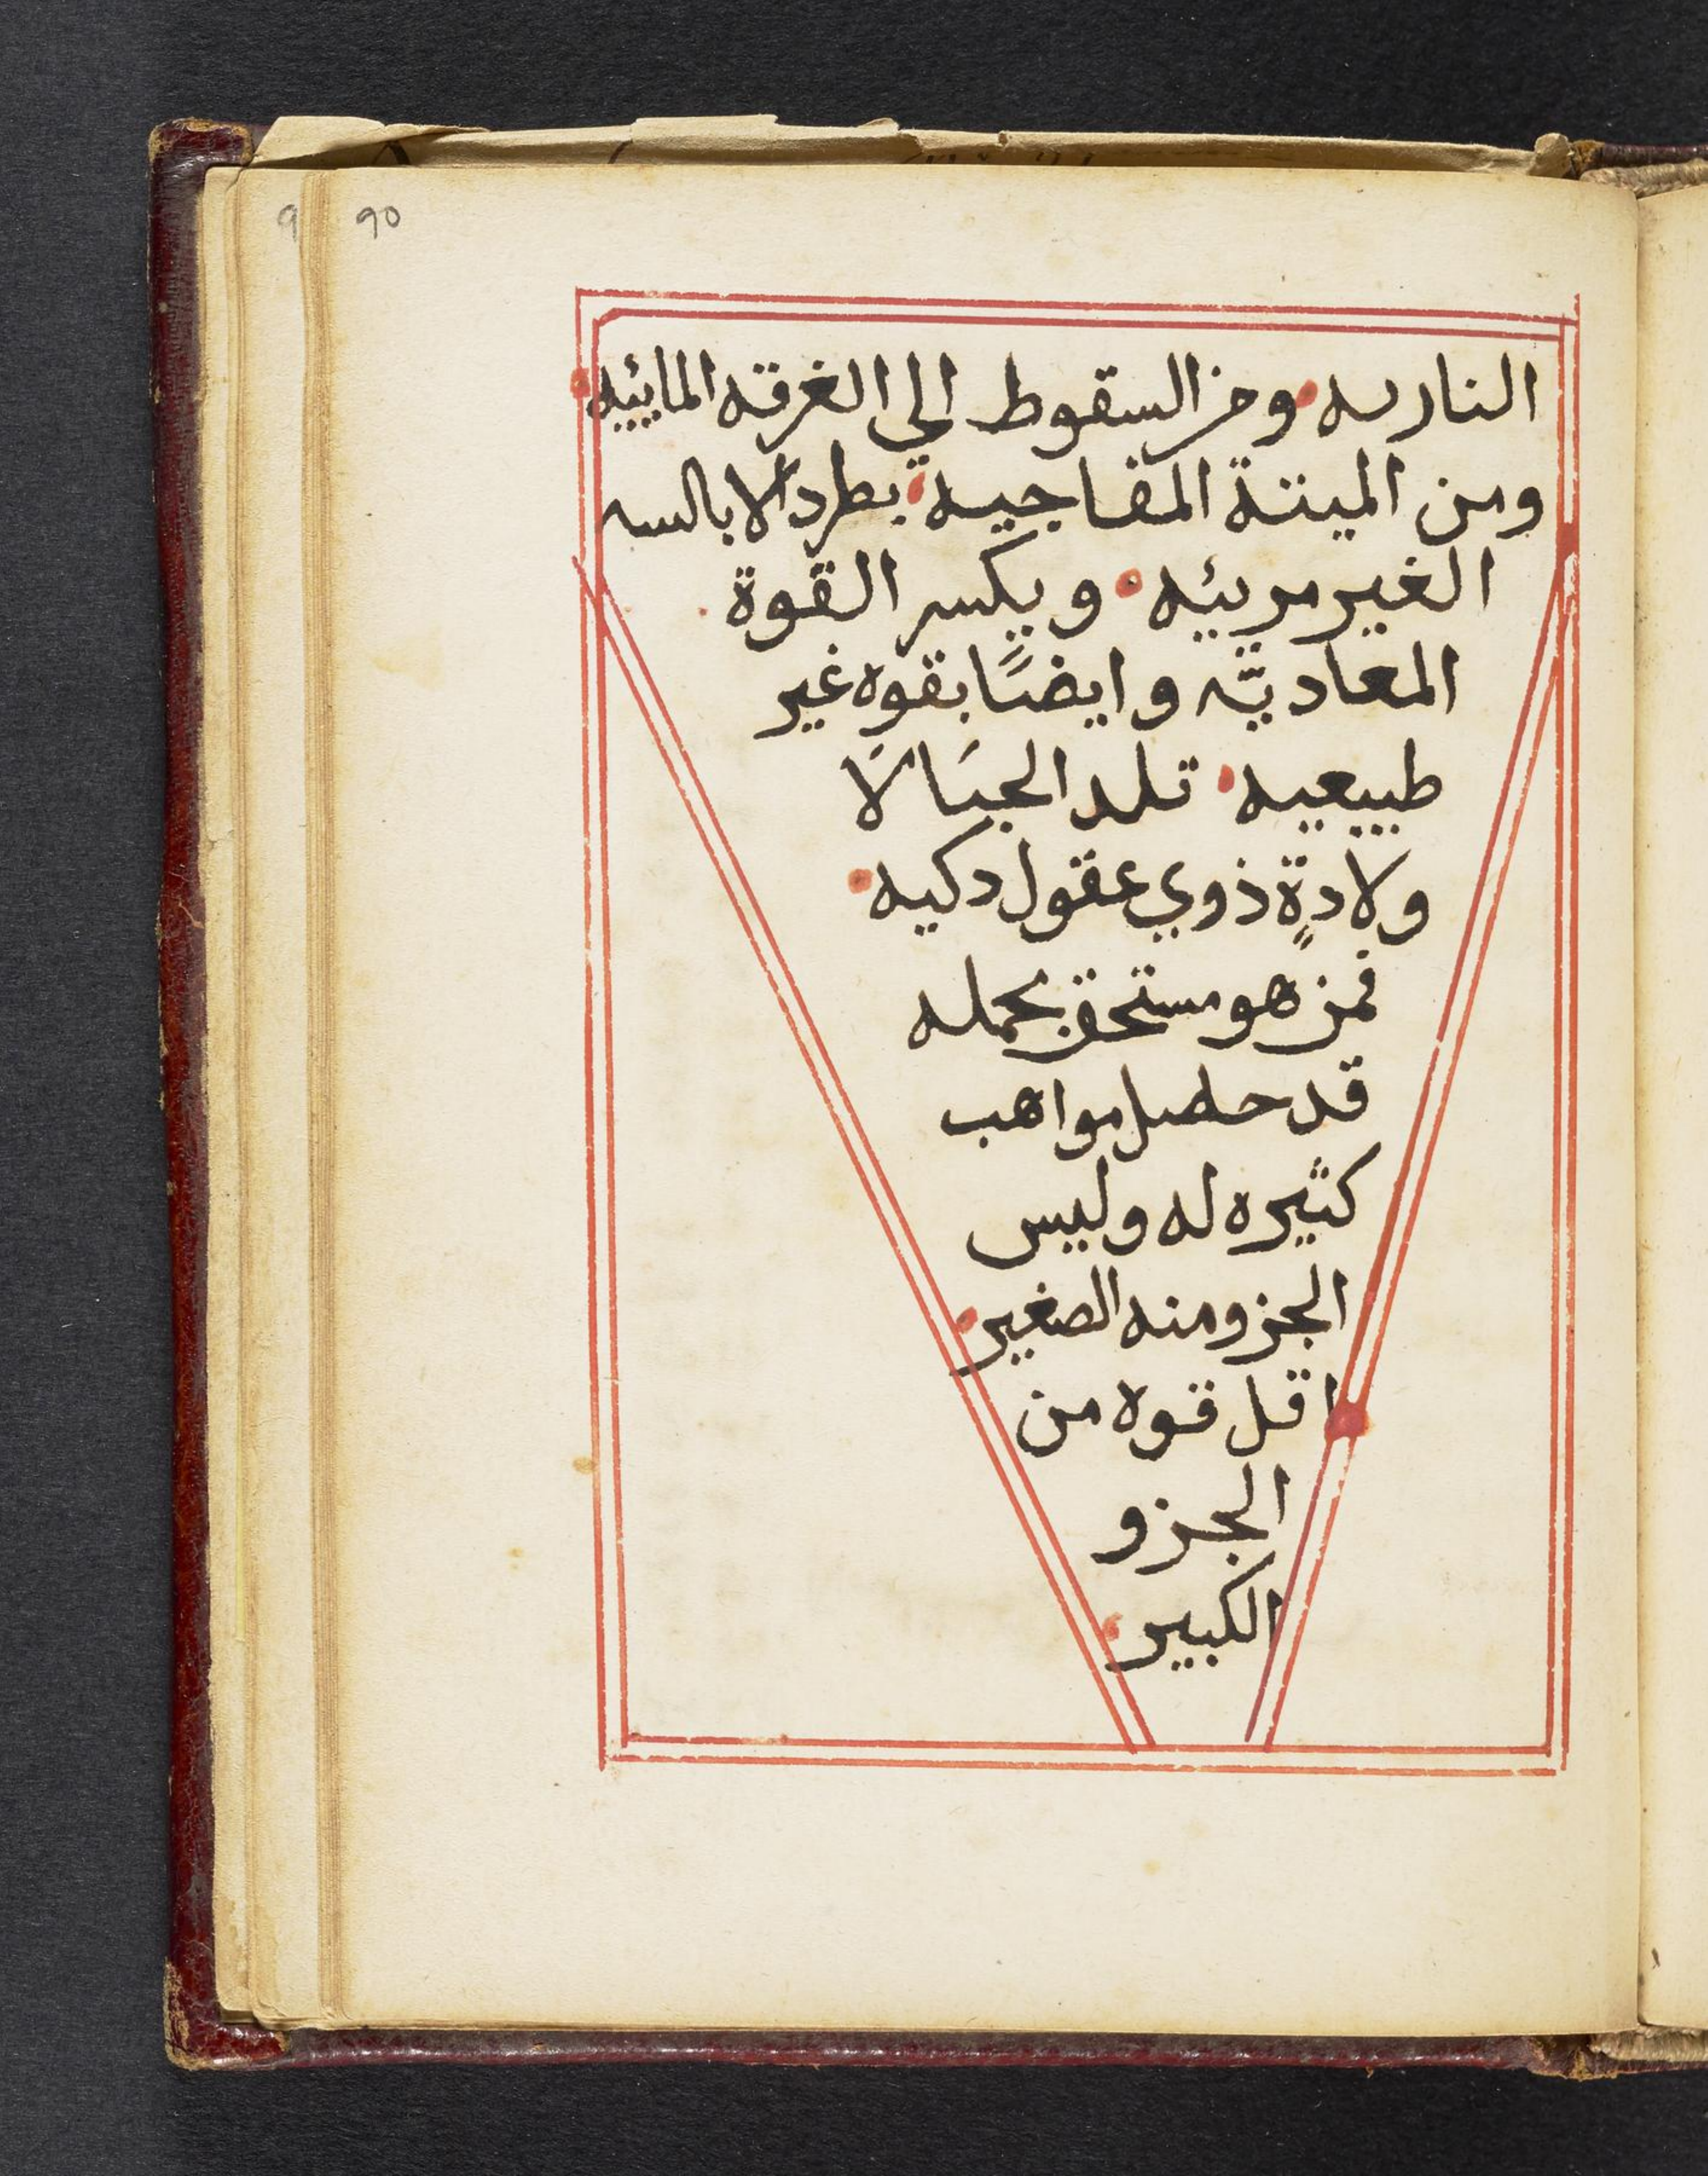 9 90
الناريه ومن السقوط الي الغرقه المايئيه
ومن الميتة المفاجيه يطرد الابالسه
الغير مريئيه و يكسر القوة
المعاديّه وايضًا بقوه غير
طبيعيه تلد الحبَالَا
ولادةٍ ذوي عقول دكيه
فمن هو مستحق بحمله
قد حصل مواهب
كثيره له وليس
الجزو منه الصغير
اقل قوه من
الجزو
الكبير